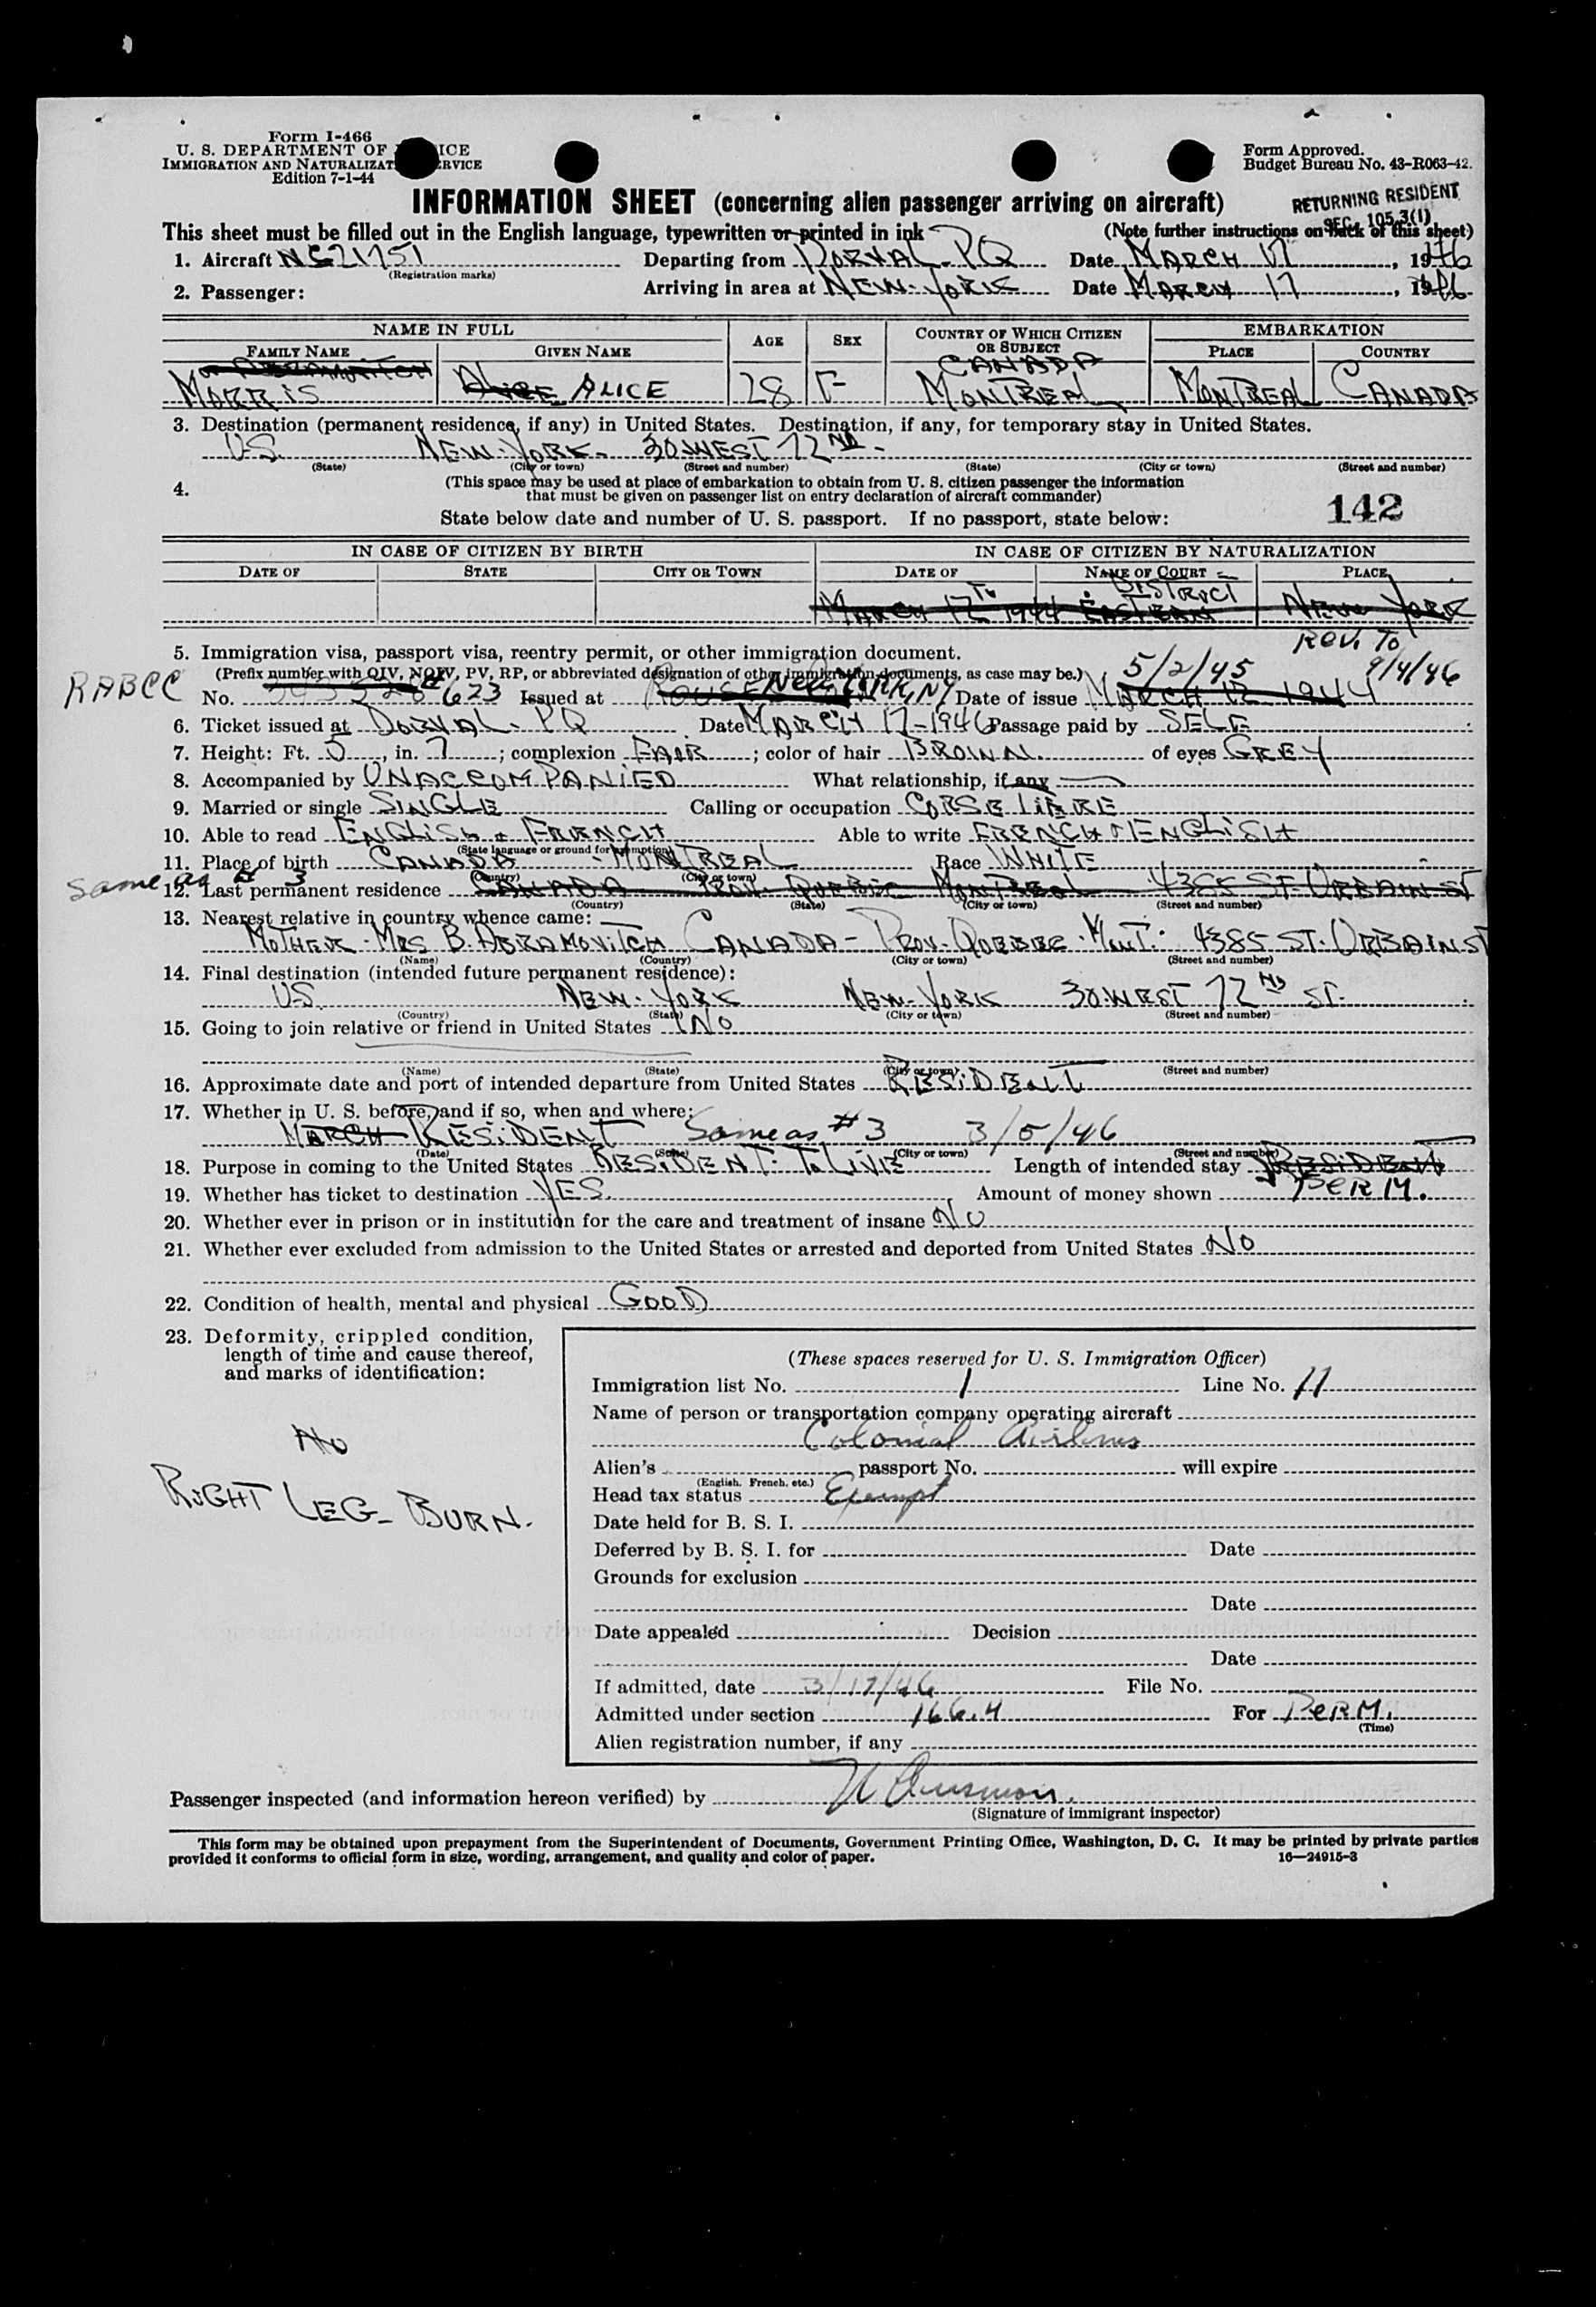 Form I-466
U. S. DEPARTMENT OF ICE
IMMIGRATION AND NATURALIZAT RVICE
Edition 7-1-44
Form Approved.
Budget Bureau No. 43-R063-42.
INFORMATION SHEET (concerning alien passenger arriving on aircraft)
RETURNING RESIDENT
SEC. 105.3(1)
This sheet must be filled out in the English language, typewritten or printed in ink (Note further instructions on back of this sheet)
1. Aircraft NC21751 Departing from DORVAL. PQ Date MARCH 17, 1946
(Registration marks)
2. Passenger: Arriving in area at NEW-YORK Date MARCH 17, 1946
NAME IN FULL AGE SEX COUNTRY OF WHICH CITIZEN OR SUBJECT EMBARKATION
FAMILY NAME GIVEN NAME PLACE COUNTRY
CANADA
MORRIS ALICE ALICE 28 F MONTREAL MONTREAL CANADA
3. Destination (permanent residence, if any) in United States. Destination, if any, for temporary stay in United States.
U.S. NEW-YORK. 30 WEST 72ND -
(State) (City or town) (Street and number) (State) (City or town) (Street and number)
4. (This space may be used at place of embarkation to obtain from U. S. citizen passenger the information
that must be given on passenger list on entry declaration of aircraft commander)
142
State below date and number of U. S. passport. If no passport, state below:
IN CASE OF CITIZEN BY BIRTH IN CASE OF CITIZEN BY NATURALIZATION
DATE OF STATE CITY OR TOWN DATE OF NAME OF COURT PLACE
DISTRICT
MARCH 17TH 1944 EASTERN NEW YORK
REV. TO
5. Immigration visa, passport visa, reentry permit, or other immigration document.
(Prefix number with QIV, NQIV, PV, RP, or abbreviated designation of other immigration documents, as case may be.) 5/2/45 9/4/46
RABCC No. #623 Issued at New York, NY Date of issue MARCH 12 1944
6. Ticket issued at DORVAL. PQ Date MARCH 17-1946 Passage paid by SELF
7. Height: Ft. 5, in. 7; complexion FAIR; color of hair BROWN. of eyes GREY
8. Accompanied by UNACCOMPANIED What relationship, if any —
9. Married or single SINGLE Calling or occupation CORSETIERE
10. Able to read ENGLISH & FRENCH Able to write FRENCH & ENGLISH
(State language or ground for exemption)
11. Place of birth CANADA - MONTREAL Race WHITE
(Country) (City or town)
Same as # 3
12. Last permanent residence CANADA PROV. QUEBEC MONTREAL 4385 ST. URBAIN ST
(Country) (State) (City or town) (Street and number)
13. Nearest relative in country whence came:
MOTHER - MRS B. ABRAMOVITCH CANADA - PROV. QUEBEC. MONT. 4385 ST. URBAIN ST
(Name) (Country) (City or town) (Street and number)
14. Final destination (intended future permanent residence):
U.S. NEW-YORK NEW-YORK 30 WEST 72ND ST.
(Country) (State) (City or town) (Street and number)
15. Going to join relative or friend in United States NO
(Name) (State) (City or town) (Street and number)
16. Approximate date and port of intended departure from United States RESIDENT
17. Whether in U. S. before, and if so, when and where:
MARCH RESIDENT Same as #3 3/5/46
(Date) (State) (City or town) (Street and number)
18. Purpose in coming to the United States RESIDENT. TO LIVE Length of intended stay RESIDENT
19. Whether has ticket to destination YES. Amount of money shown PERM.
20. Whether ever in prison or in institution for the care and treatment of insane NO
21. Whether ever excluded from admission to the United States or arrested and deported from United States NO
22. Condition of health, mental and physical GOOD
23. Deformity, crippled condition,
length of time and cause thereof,
and marks of identification:
NO
RIGHT LEG - BURN.
(These spaces reserved for U. S. Immigration Officer)
Immigration list No. 1 Line No. 11
Name of person or transportation company operating aircraft
Colonial Airlines
Alien's passport No. will expire
(English, French, etc.)
Head tax status Exempt
Date held for B. S. I.
Deferred by B. S. I. for Date
Grounds for exclusion
Date
Date appealed Decision
Date
If admitted, date 3/17/46 File No.
Admitted under section 166.4 For PERM.
(Time)
Alien registration number, if any
Passenger inspected (and information hereon verified) by
(Signature of immigrant inspector)
This form may be obtained upon prepayment from the Superintendent of Documents, Government Printing Office, Washington, D. C. It may be printed by private parties
provided it conforms to official form in size, wording, arrangement, and quality and color of paper. 16—24915-3